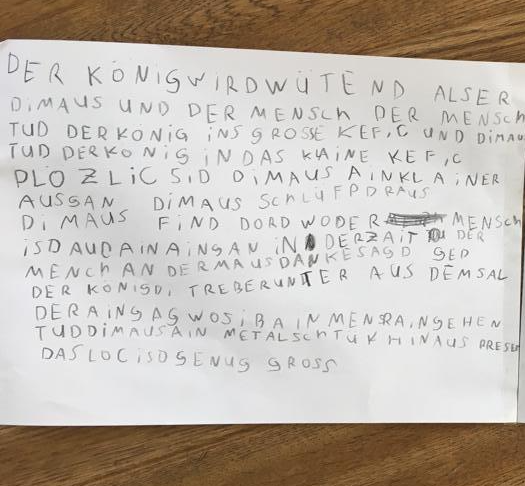 DER KÖNIGWIRDWÜTEND ALSER
DiMAUS UND DER MENSCh DER MENSCh
TUD DERKÖNiG iNS GROSSE KEFiC UND DiMAUS
TUD DERKONiG iN DAS KLAiNE KEFiC
PLÖZLiC SiD DiMAUS AiNKLAiNER
AUSGAN DiMAUS SCHLÜFPDRAUS
DiMAUS FiND DORD WODER MENSCh
iSD AUDAiNAiNGAN iN DERZAiT DER
MENCh AN DERMAUSDANKESAGD GED
DER KÖNiGDi TREBERUNTER AUS DEMSAL
DERAiNGAG WOSiBAiNMENSRAiNGEHEN
TUDDiMAUSAiN METALSChTÜKHiNAUS PRESEN
DASLOCiSDGENUG GROSS